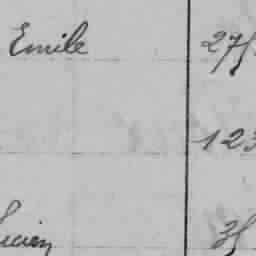 Emile 275
123
Lucien 35